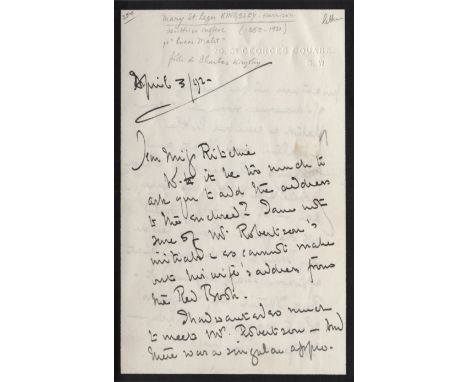 Mary St Leger KINGSLEY-Harrison
letter
(1852-1931)
"Lucas Malet"
fille de Charles Kingsley
29, ST GEORGE'S SQUARE,
S.W.
April 3/92.
Dear Miss Ritchie
it be too much to
ask you to add the address
to the enclosed? I am not
sure of Mr. Robertson's
initials & so cannot make
out his wife's address from
the Red Book.
I had wanted so much
to meet Mr. Robertson — but
there was a singular appro-